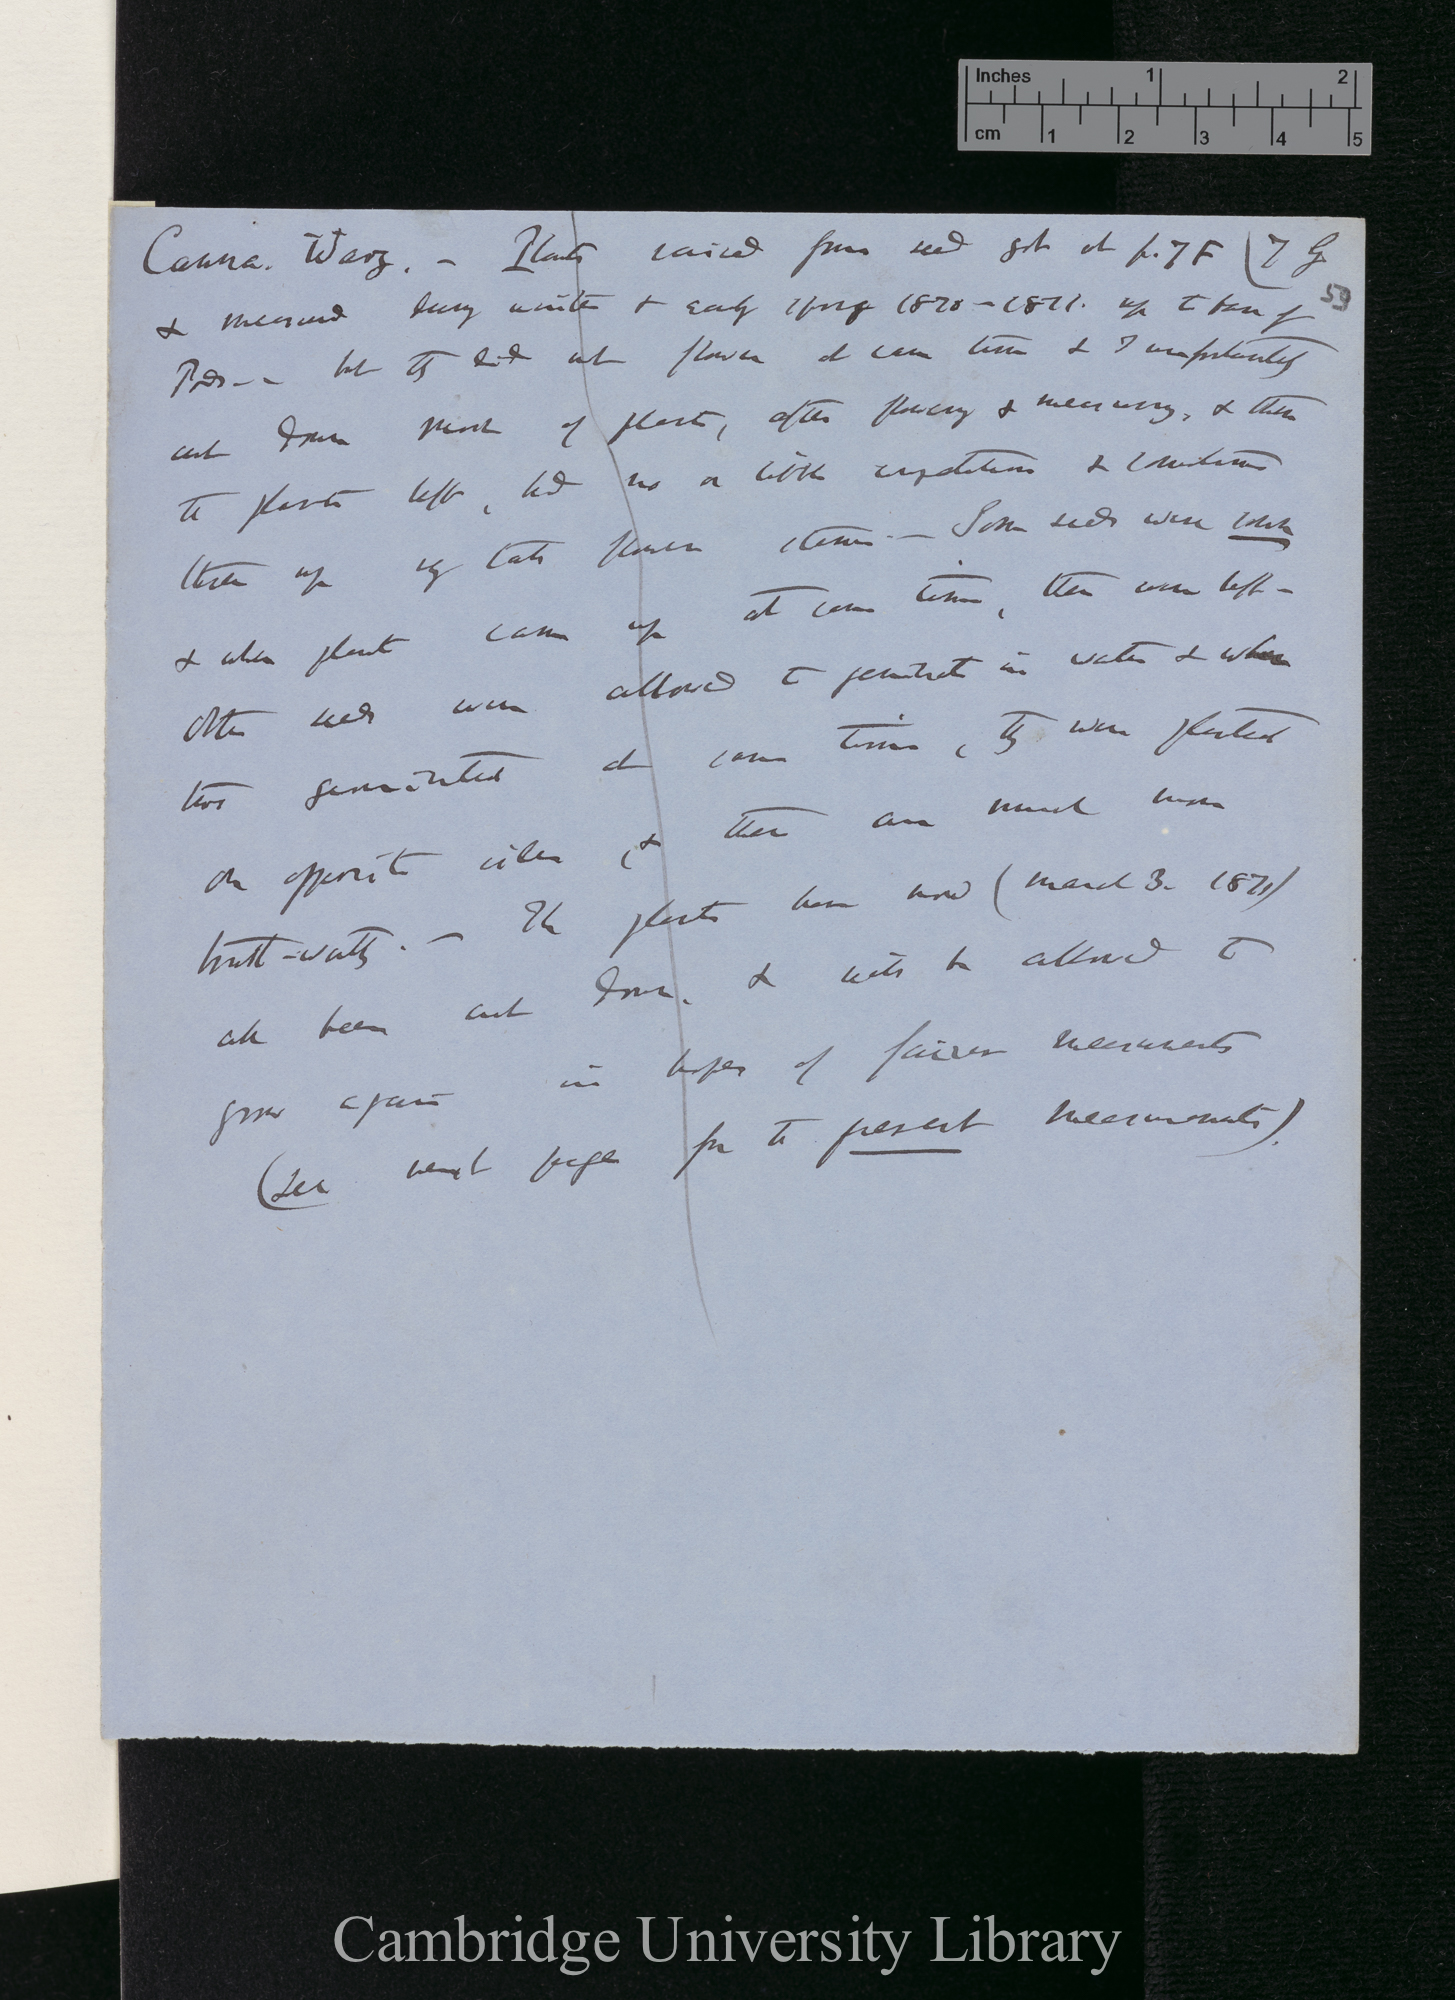 Inches 1 2
cm 1 2 3 4 5
Canna. Warz. — Plants raised from seed got at p. 7 F (7 G
53
& measured during winter & early spring 1870–1871. up to tops of
Pods — but they did not flower at same time & I unfortunately
cut down most of plants, after flowering & measuring, & then
the plants left, had no or little competition & sometimes
threw up very late flower stems. — Some seeds were sown
& when plants came up at same time, these were left —
Other seeds were allowed to germinate in water & when
two germinated at same time, they were planted
on opposite sides, & these are much more
trust-worthy. — The plants have now (March 3. 1871)
all been cut down. & will be allowed to
grow again in hopes of fairer measurements
(See next page for the present measurements).
Cambridge University Library